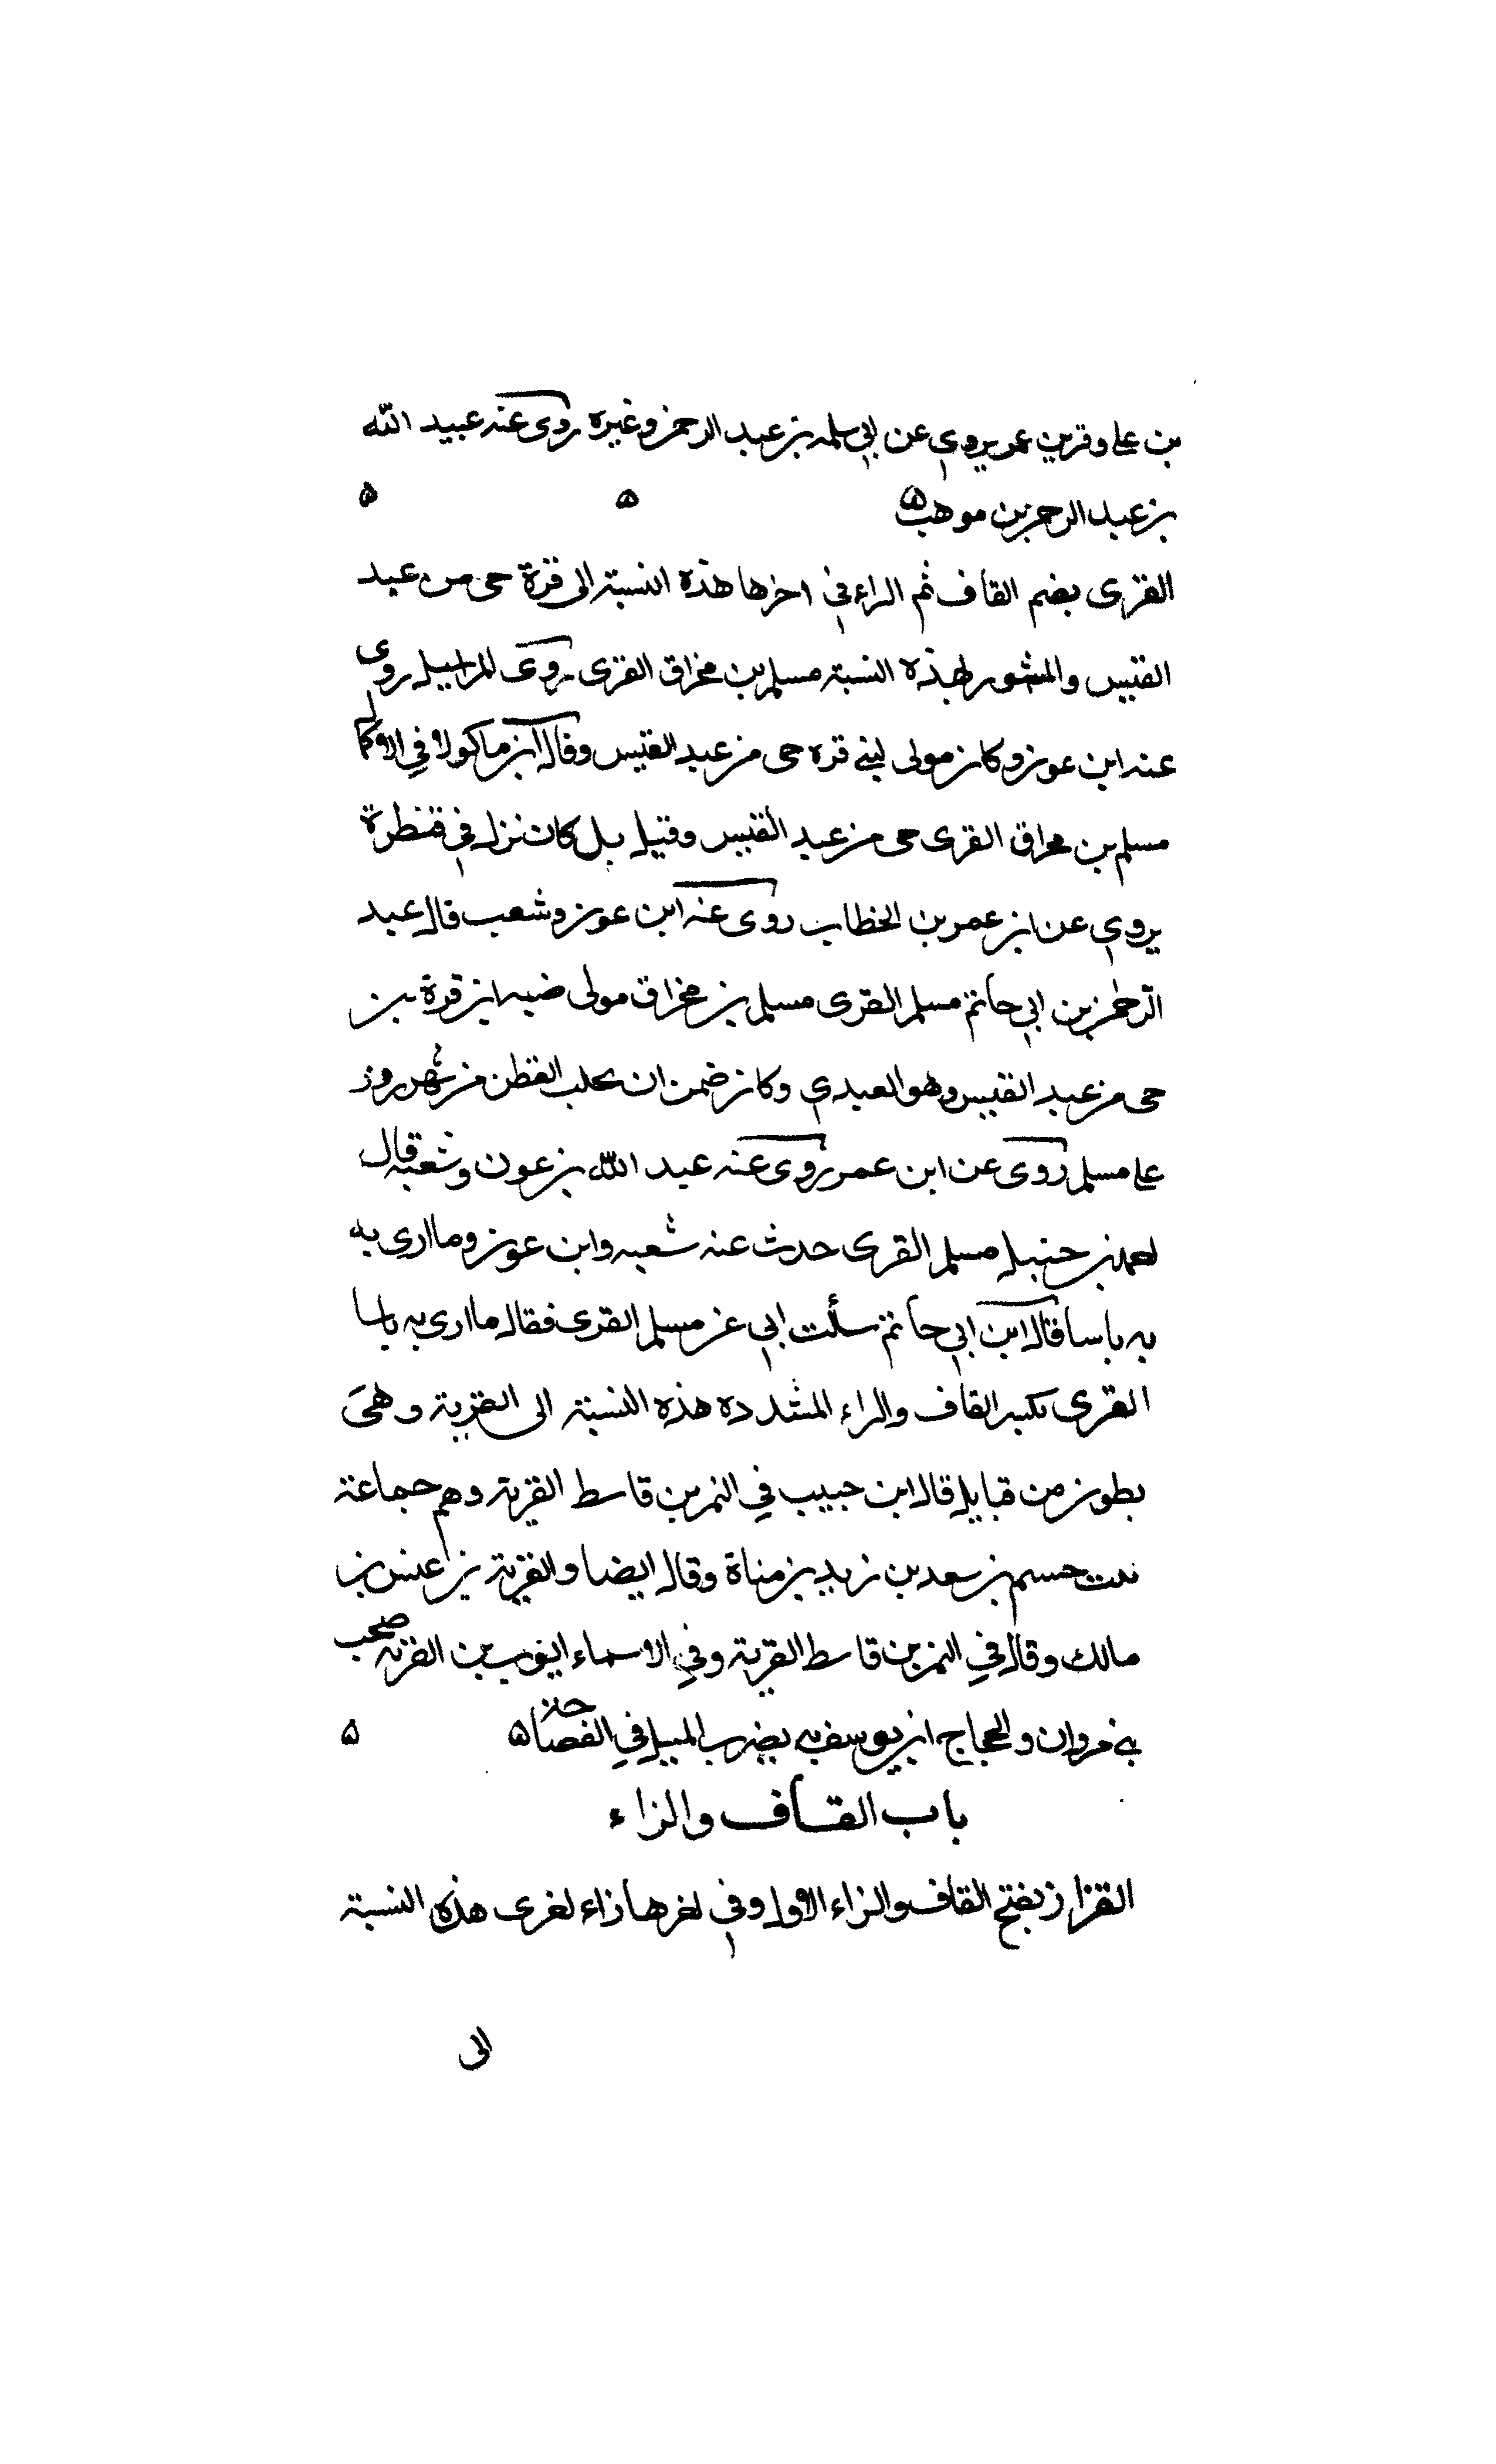 بن علي وقرين عمر يروي عن ابي سلمه بن عبد الرحمن وغيره روى عنه عبيد الله
بن عبد الرحمن بن موهب ه ه ه
القرى بضم القاف ثم الراء في اخرها هذه النسبة الى قرة حى من عبد
القيس والمشهور بهذه النسبة مسلم بن مخراق القرى روى المراسيل روى
عنه ابن عون وكان مولى لبني قره حى من عبد القيس وقال ابن ماكولا في الاكمال
مسلم بن محراق القرى حى من عبد القيس وقيل بل كان نزل في قنطرة
يروي عن ابن عمر بن الخطاب روى عنه ابن عون وشعب قال عبد
الرحمن بن ابي حاتم مسلم القرى مسلم بن مخراق مولى ضبه ابن قرة بن
حى من عبد القيس وهو العبدي وكان ضمن ان يحلب القطن من شهرروز
على مسلم روى عن ابن عمر روى عنه عبد الله بن عون وشعبة قال
احمد بن حنبل مسلم القرى حدث عنه شعبه وابن عون وما ارى به
به باسا قال ابن ابي حاتم سألت ابي عن مسلم القرى فقال ما ارى به باسا
القرى بكسر القاف والراء المشدده هذه النسبة الى القرية وهى
بطون من قبايل قال ابن حبيب في النمر بن قاسط القرية وهم جماعة
بنت جسم بن سعد بن زيد بن مناة وقال ايضا والقرية بن اعنس بن
مالك وقال في النمر بن قاسط القرية وفي الاسماء ايوب بن القرية صحب
بني مروان والحجاج ابن يوسف به يضرب المثل في الفصاحة ه ه
باب القاف والزاء
القزاز بفتح القاف والزاء الاولى وفي اخرها زاء اخرى هذه النسبة
الى